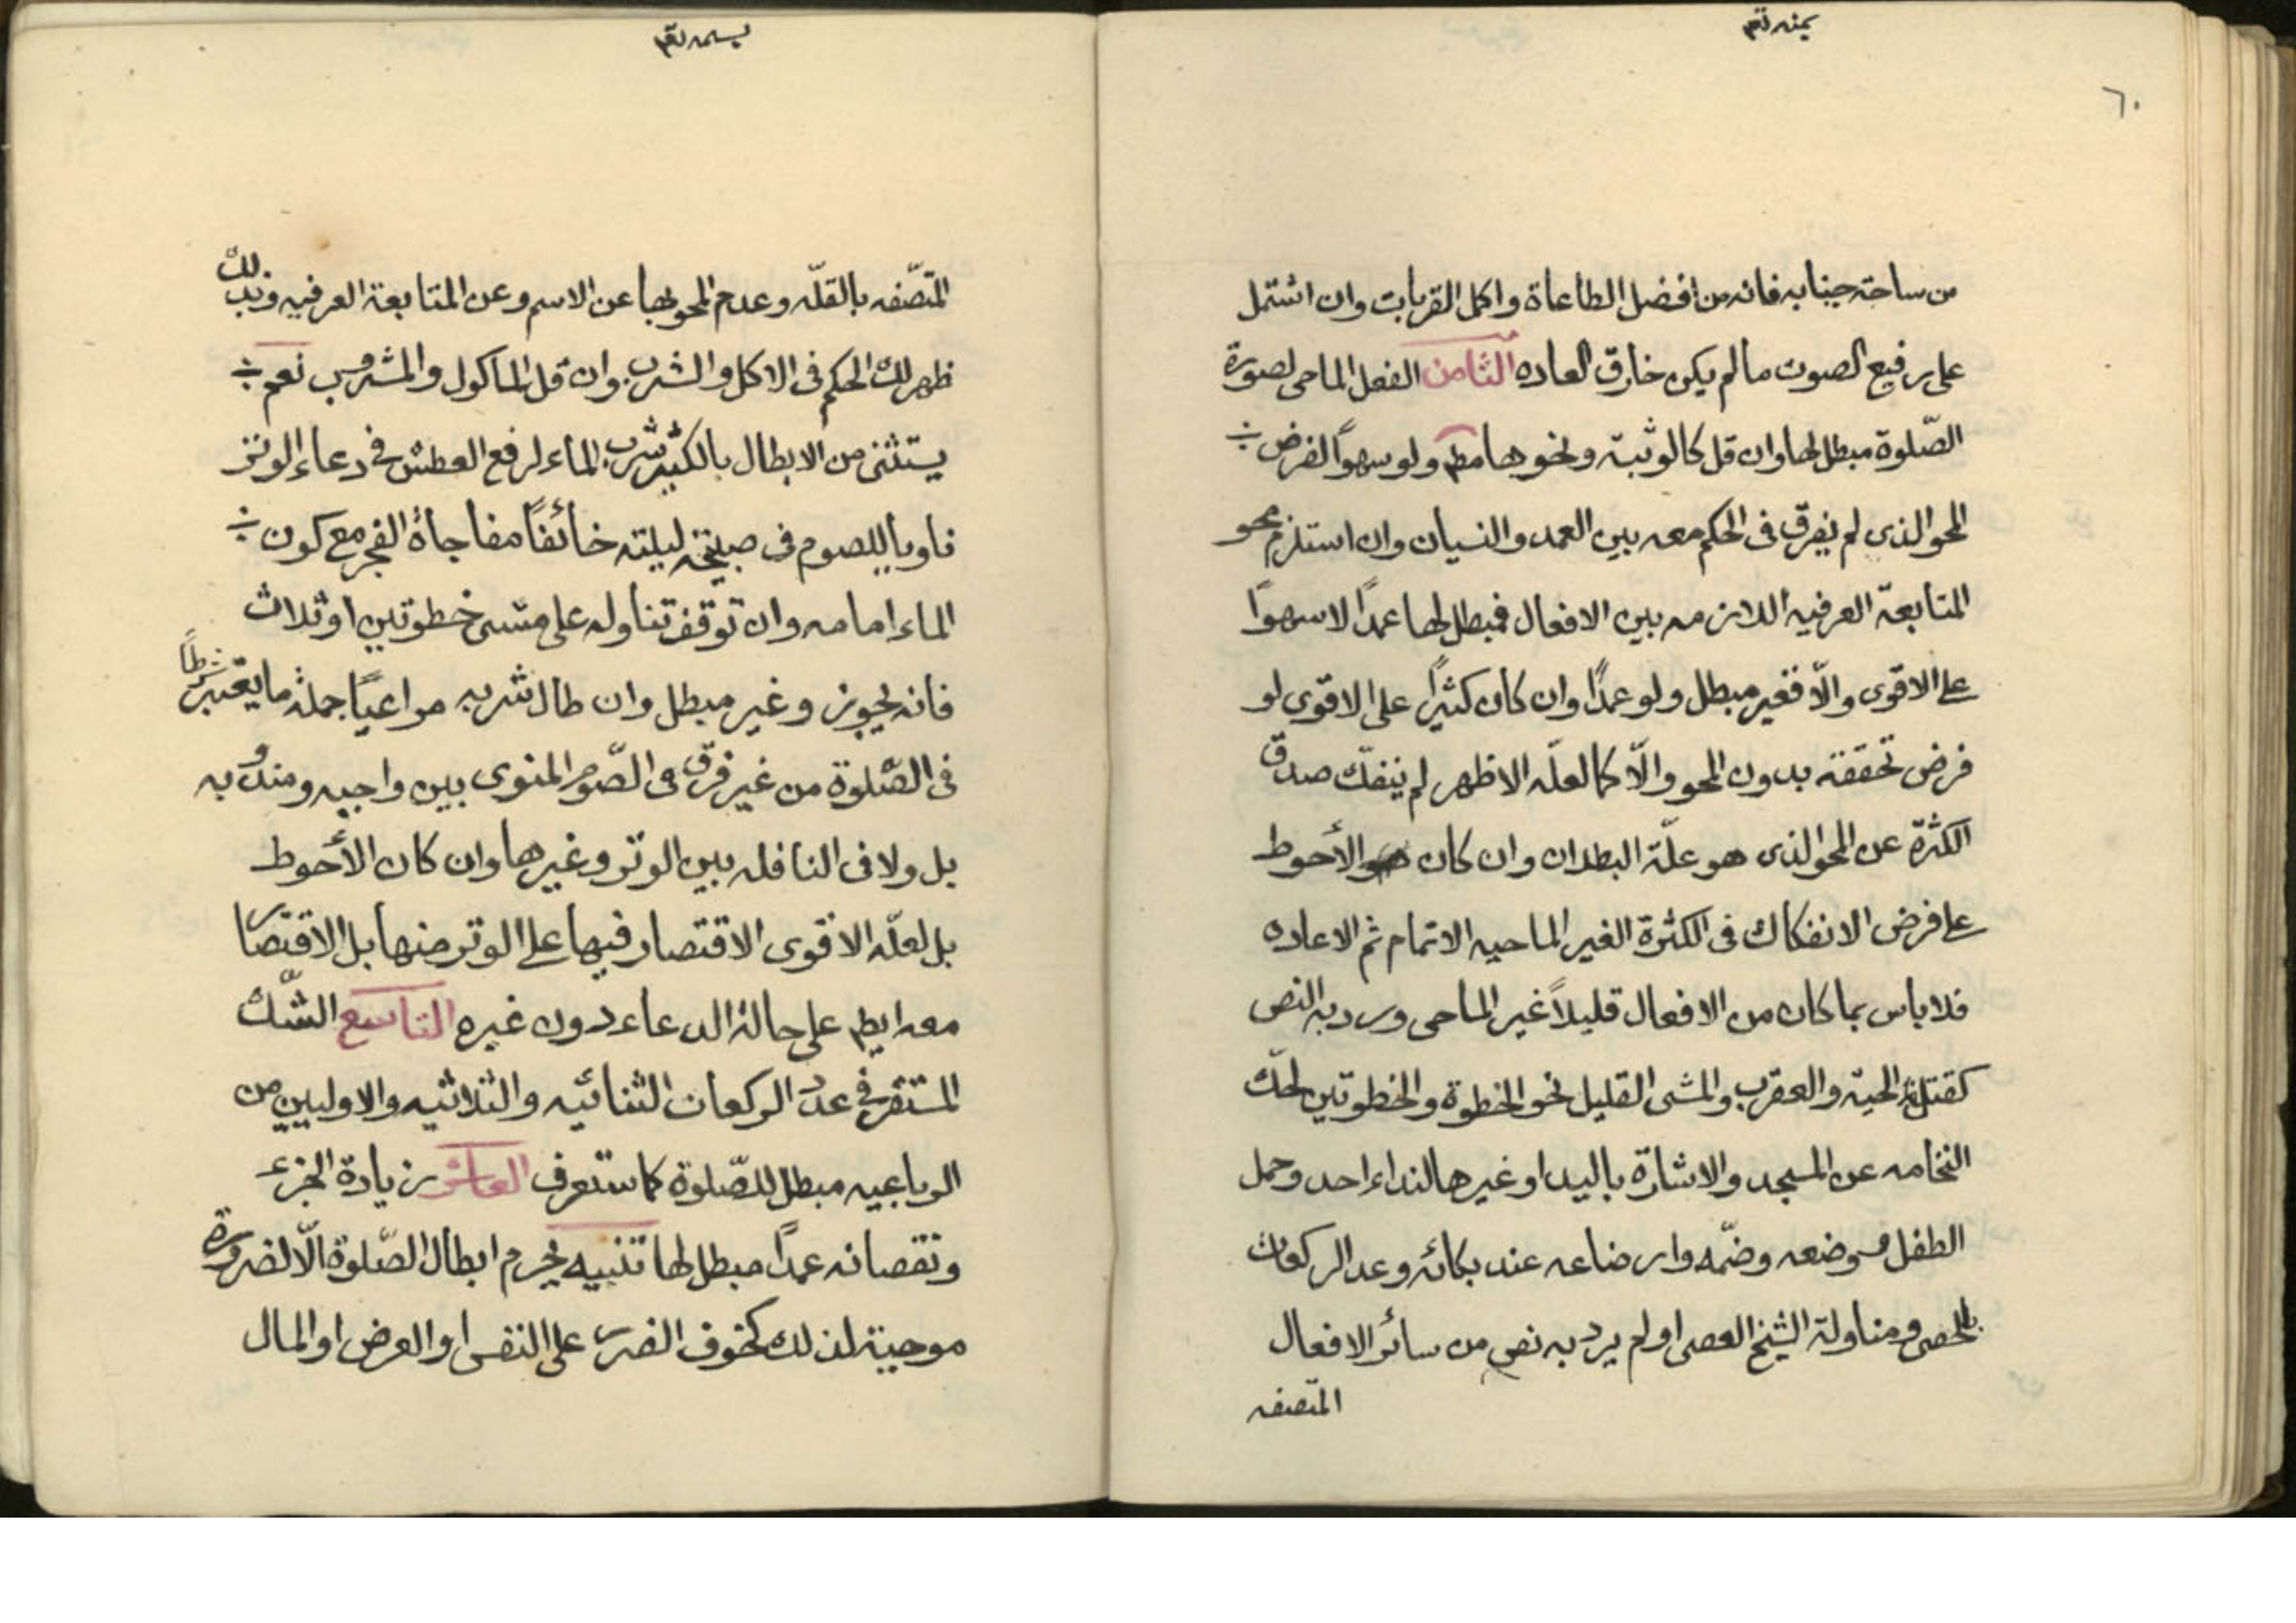 يمنه تقم
٦٠
من ساحة جنابه فانه من افضل الطاعاة واكمل القربات وان اشتمل
على رفيع الصوت ما لم يكن خارق العاده الثامن الفعل الماحى لصورة
الصّلوة مبطل لها وان قل كالوثبة ونحوها مطم ولو سهواً لفرض
المحو الذى لم يفرق فى الحكم معه بين العمد والنسيان وان استلزم محو
المتابعة العرفيه اللازمه بين الافعال فمبطل لها عمداً لا سهواً
على الاقوى والّا فغير مبطل ولو عمداً وان كان كثيراً على الاقوى لو
فرض تحققه بدون المحو والّا كما لعلّه الاظهر لم ينفك صدق
الكثرة عن المحو الذى هو علّة البطلان وان كان الأحوط
على فرض الانفكاك فى الكثرة الغير الماحيه الاتمام ثم الاعاده
فلا باس بما كان من الافعال قليلاً غير الماحى ورد به النص
كقتل الحيّة والعقرب والمشى القليل نحو الخطوة والخطوتين لحكّ
النخامه عن المسجد والاشارة باليد او غيرها لنداء احد وحمل
الطفل ووضعه وضمّه وارضاعه عند بكائه وعد الركعات
بالحصى ومناولة الشيخ العصى او لم يرد به نص من سائر الافعال
المتصفه
يسمه تقم
المتصّفه بالقلّه وعدم المحو بها عن الاسم وعن المتابعة العرفيه وبذلك
ظهر لك الحكم فى الاكل والشرب وان قل الماكول والمشروب نعم
يستثنى من الابطال بالكثير شرب الماء لرفع العطش فى دعاء الوتر
ناوياً للصوم فى صبيحة ليلته خائفاً مفاجأة الفجر مع كون
الماء امامه وان توقف تناوله على مشى خطوتين او ثلاث
فانه يجوز وغير مبطل وان طال شربه مراعياً جملة ما يعتبر شرطاً
فى الصّلوة من غير فرق فى الصّوم المنوى بين واجبه ومندوبه
بل ولا فى النافله بين الوتر وغيرها وان كان الأحوط
بل لعلّه الاقوى الاقتصار فيها على الوتر منها بل الاقتصار
معه ايضم على حالة الدعاء دون غيره التاسع الشّك
المستقر فى عدد الركعات الثنائيه والثلاثيه والاوليين من
الرباعيه مبطل للصّلوة كما ستعرف العاشر زيادة الجزء
ونقصانه عمداً مبطل لها تنبيه يحرم ابطال الصّلوة الّا لضرورة
موجبة لذلك كخوف الضرر على النفس او العرض او المال